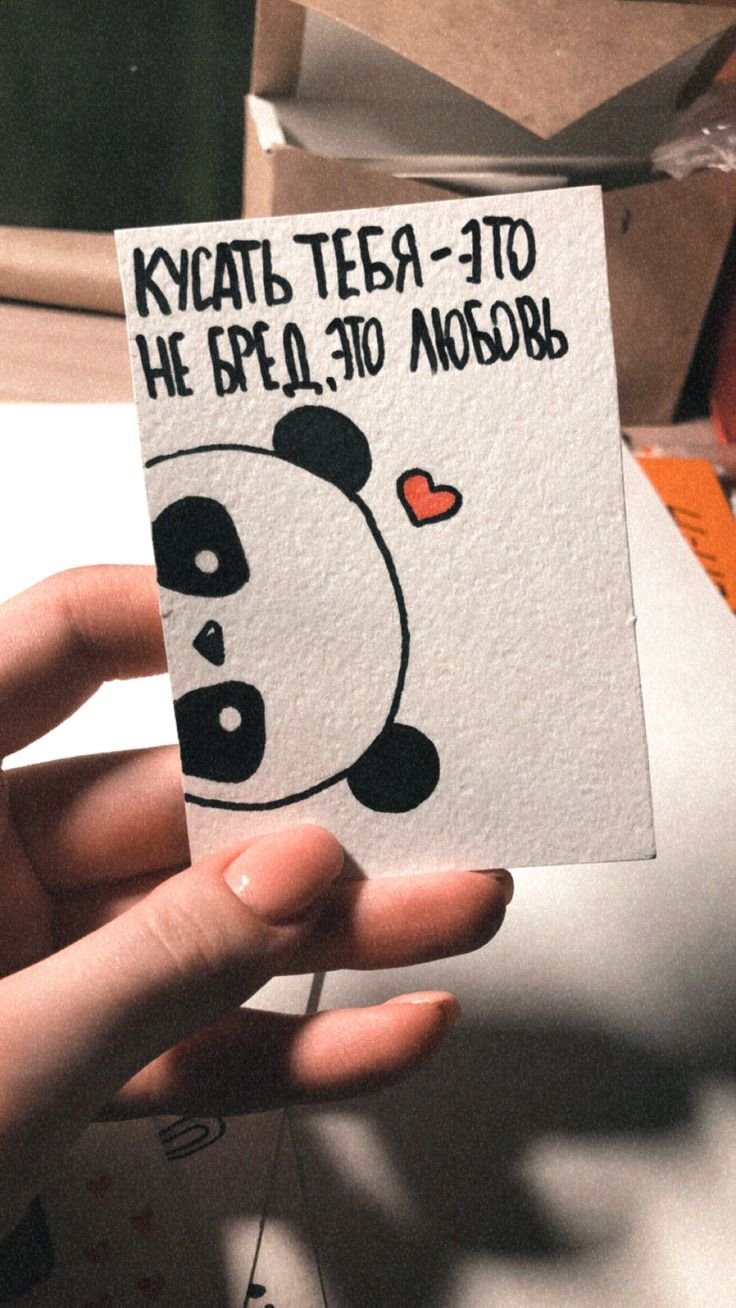 КУСАТЬ ТЕБЯ - ЭТО
НЕ БРЕД, ЭТО ЛЮБОВЬ